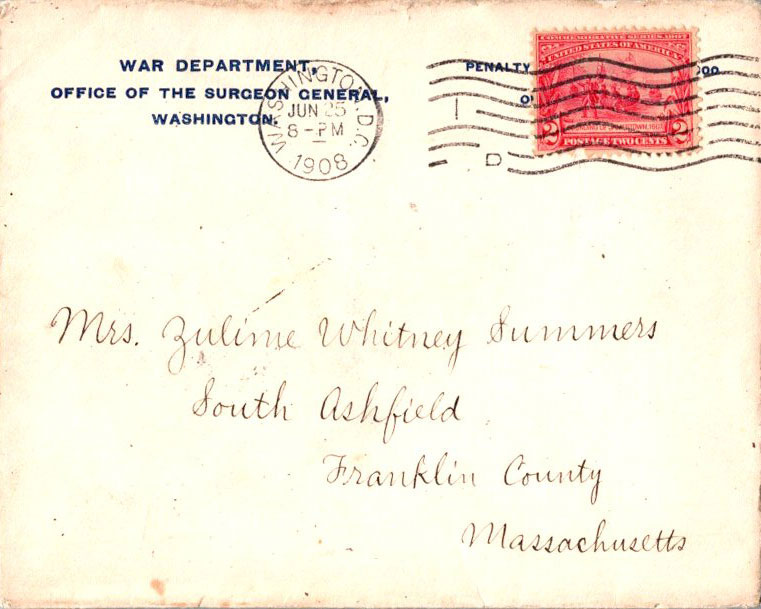 WAR DEPARTMENT,
OFFICE OF THE SURGEON GENERAL,
WASHINGTON.
WASHINGTON, D.C.
JUN 25
8-PM
1908
PENALTY
COMMEMORATIVE SERIES 1907
UNITED STATES OF AMERICA
2 2
POSTAGE TWO CENTS
D
Mrs. Zulime Whitney Summers
South Ashfield
Franklin County
Massachusetts